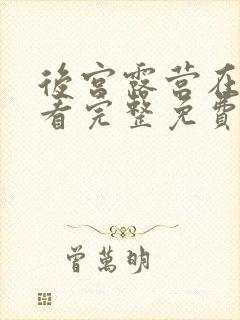 後宮露营在
看完整免費
曾萬明